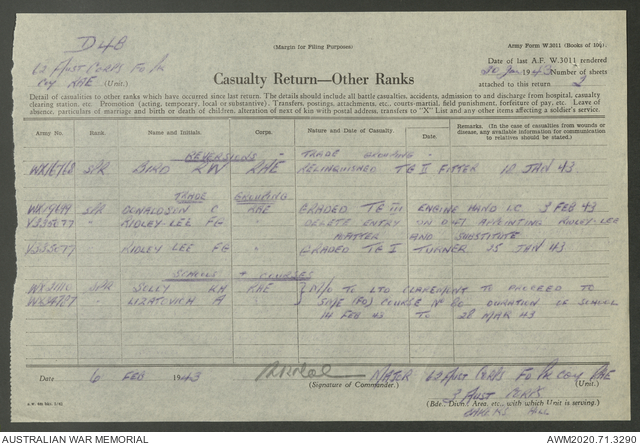 D4B
(Margin for Filing Purposes)
Army Form W.3011 (Books of 100).
62 Aust Corps Fd Pk
Coy RAE (Unit.)
Casualty Return—Other Ranks
Date of last A.F. W.3011 rendered
30 Jan 1943 Number of sheets
attached to this return 2
Detail of casualties to other ranks which have occurred since last return. The details should include all battle casualties, accidents, admission to and discharge from hospital, casualty
clearing station, etc. Promotion (acting, temporary, local or substantive). Transfers, postings, attachments, etc., courts-martial, field punishment, forfeiture of pay, etc. Leave of
absence, particulars of marriage and birth or death of children, alteration of next of kin with postal address, transfers to "X" List and any other items affecting a soldier's service.
Army No. Rank. Name and Initials. Corps. Nature and Date of Casualty. Date. Remarks. (In the case of casualties from wounds or disease, any available information for communication to relatives should be stated.)
REVERSIONS - TRADE GROUPING
SPR BIRD RW RAE RELINQUISHED TG II FITTER 12 JAN 43
TRADE GROUPING
SPR DONALDSON C RAE GRADED TG III ENGINE HAND I.C 3 FEB 43
" RIDLEY-LEE FG " DELETE ENTRY ON RIDLEY-LEE
AND SUBSTITUTE
RIDLEY LEE FG " GRADED TG I TURNER 25 JAN 43
SCHOOLS + COURSES
SPR RH RAE TO LTD CLAREMONT TO PROCEED TO
" LIZATOVICH A " SME (FD) COURSE No 20 DURATION OF SCHOOL
14 FEB 43 TO 28 MAR 43
Date 6 FEB 1943 MAJOR 62 AUST CORPS FD PK COY RAE
(Signature of Commander.) (Unit.)
3 AUST CORPS
(Bde., Divn., Area, etc., with which Unit is serving.)
HILL
AUSTRALIAN WAR MEMORIAL
AWM2020.71.3290